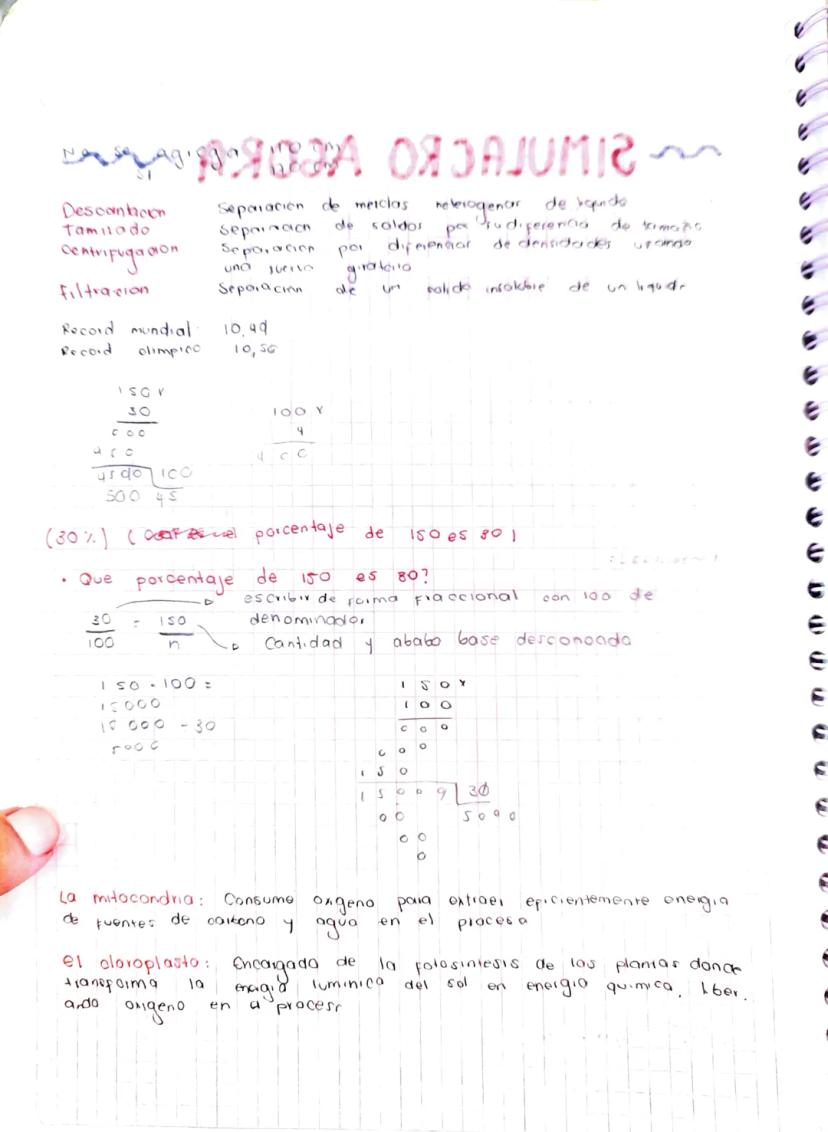 SIMULACRO
Decantacion Separación de mezclas heterogenas de liquido
Tamizado Separacion de solidos por su diferencia de tamaño
Centrifugacion Separacion por diferencias de densidades usando
una fuerza giratoria
Filtracion Separacion de un solido insoluble de un liquido
Record mundial 10,49
Record olimpico 10,56
150 x
30
000
450
4500 100
500 45
100 x
4
400
(30%) ( porcentaje de 150 es 30)
• Que porcentaje de 150 es 80?
30/100 = 150/n
escribir de forma fraccional con 100 de
denominador
Cantidad y ababo base desconocida
150 - 100 =
15000
15000 - 30
5000
150 x
100
000
000
150
1500 30
00
00
0
La mitocondria: Consume oxigeno para extraer eficientemente energia
de fuentes de carbono y agua en el proceso
el cloroplasto: Encargado de la fotosintesis de las plantas donde
transforma la energia luminica del sol en energia quimica, liber.
ando oxigeno en el proceso